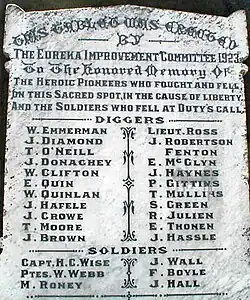 THIS TABLET WAS ERECTED
BY
THE EUREKA IMPROVEMENT COMMITTEE 1923.
To The Honored Memory OF
THE HEROIC PIONEERS WHO FOUGHT AND FELL,
ON THIS SACRED SPOT, IN THE CAUSE OF LIBERTY,
AND THE SOLDIERS WHO FELL AT DUTY'S CALL.
DIGGERS
W. EMMERMAN LIEUT. ROSS
J. DIAMOND J. ROBERTSON
J. O'NEILL FENTON
J. DONAGHEY E. MCGLYN
W. CLIFTON J. HAYNES
E. QUIN P. GITTINS
W. QUINLAN T. MULLINS
J. HAFELE S. GREEN
J. CROWE R. JULIEN
T. MOORE E. THONEN
J. BROWN J. HASSLE
SOLDIERS
CAPT. H.C. WISE J. WALL
PTES. W. WEBB F. BOYLE
M. RONEY J. HALL